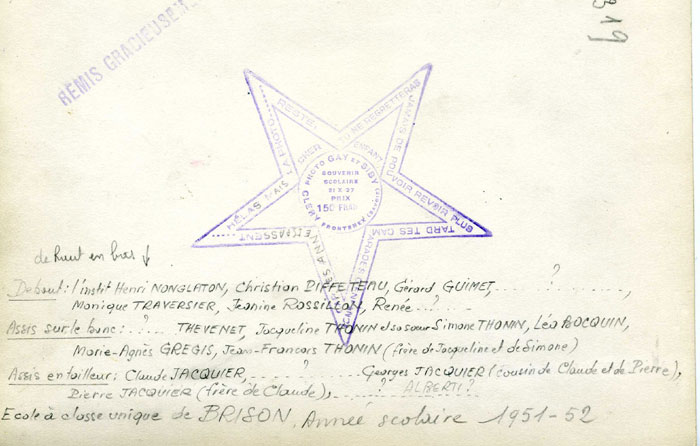 REMIS GRACIEUSEM
319
CHER ENFANT TU NE REGRETTERAS JAMAIS DE POUVOIR REVOIR PLUS TARD TES CAMARADES D'ENFANCE
LES ANNEES PASSENT HELAS MAIS LA PHOTO RESTE.
PHOTO GAY ET SIBY
SOUVENIR
SCOLAIRE
21 X 27
PRIX
150 FRAN
CLERY FRONTENEX (SAVOIE)
de haut en bas ↓
Debout: l'instit Henri NONGLATON, Christian DIFFETEAU, Gérard GUIMET, ......?......,
Monique TRAVERSIER, Jeanine ROSSILLON, Renée ..?..
Assis sur le banc: ..?.. THEVENET, Jacqueline THONIN et sa sœur Simone THONIN, Léa BOCQUIN,
Marie-Agnès GREGIS, Jean-François THONIN (frère de Jacqueline et de Simone)
Assis en tailleur: Claude JACQUIER, ......?...... Georges JACQUIER (cousin de Claude et de Pierre),
Pierre JACQUIER (frère de Claude), ....?.. ALBERTI?
Ecole à classe unique de BRISON. Année scolaire 1951-52